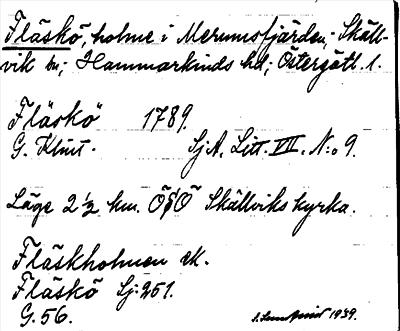 Fläskö, holme i Merumsfjärden, Skäll-
vik sn; Hammarkinds hd; Östergötl. l.
Fläskö 1789.
G. Klint. Sj.A. Litt. VII. N:o 9.
Läge 2 ½ km. ÖSÖ Skällviks kyrka.
Fläskholmen ek.
Fläskö Sj:251.
G.56. 1939.